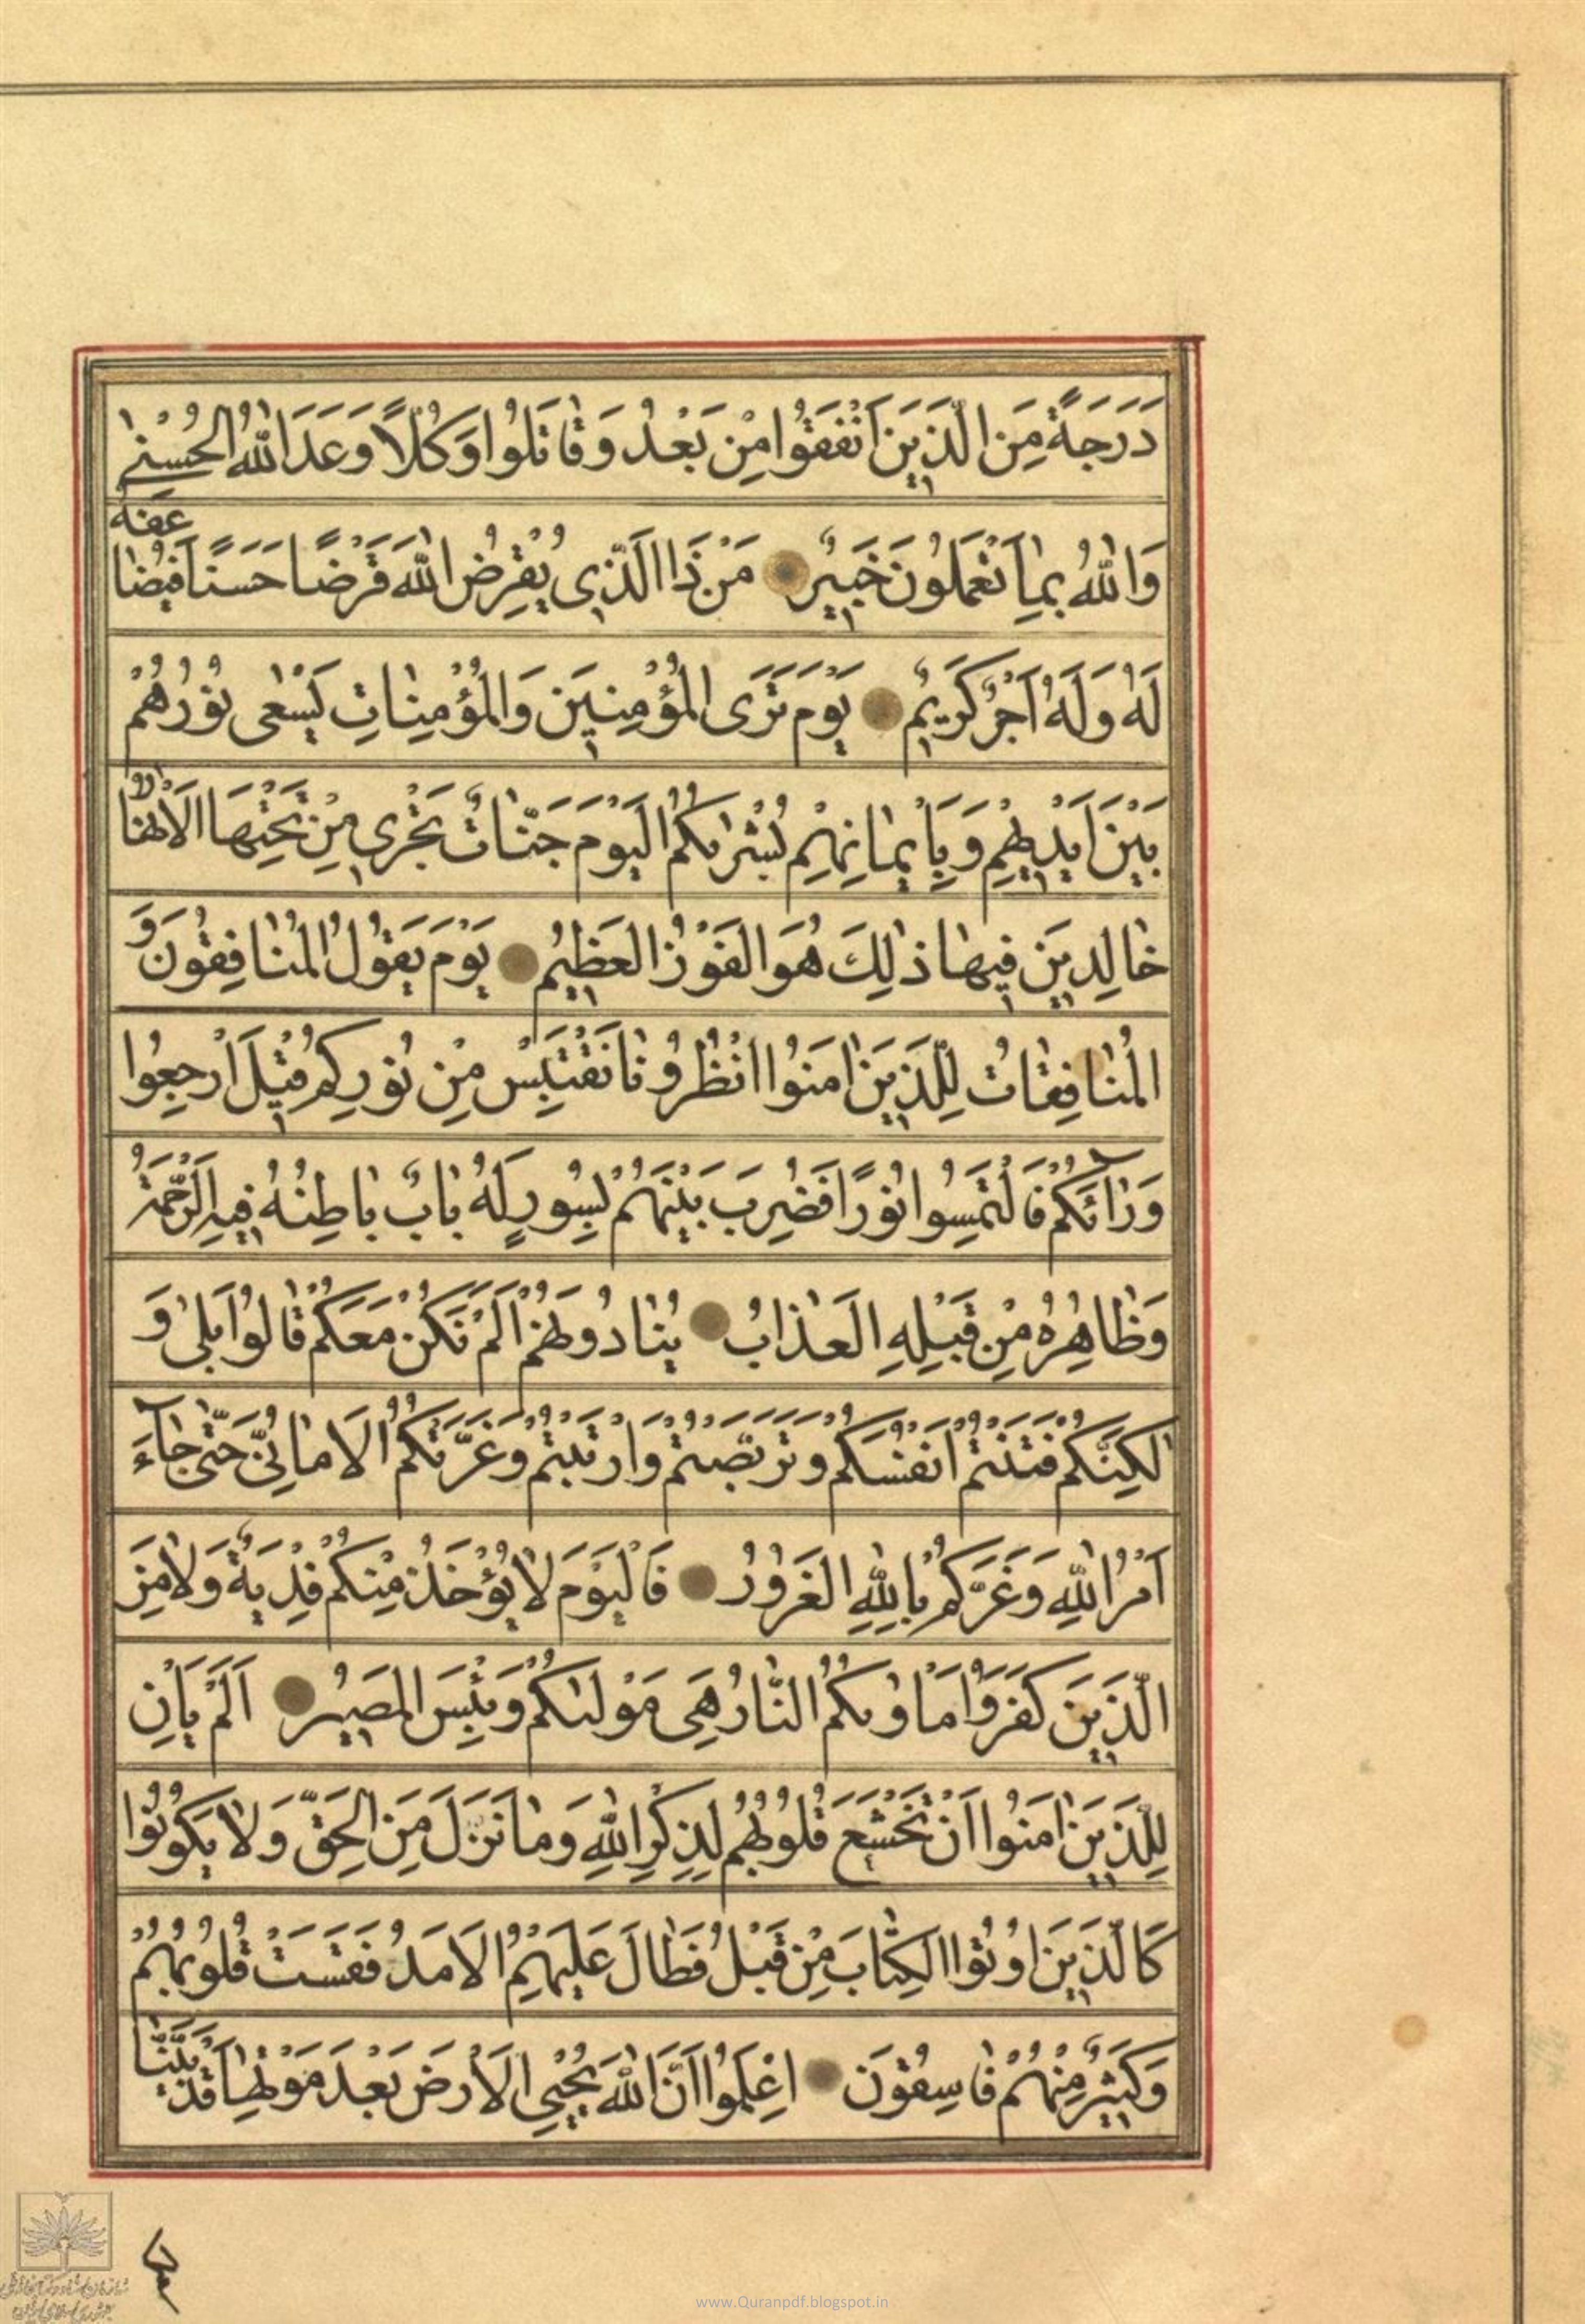 دَرَجَةً مِنَ الَّذِينَ اَنْفَقُوا مِنْ بَعْدُ وَقٰاتَلُوا وَكُلًّا وَعَدَ اللّٰهُ الْحُسْنىٰ
وَاللّٰهُ بِمٰا تَعْمَلُونَ خَبِيرٌ مَنْ ذَا الَّذِى يُقْرِضُ اللّٰهَ قَرْضًا حَسَنًا فَيُضٰاعِفَهُ
لَهُ وَلَهُ اَجْرٌ كَرِيمٌ يَوْمَ تَرَى الْمُؤْمِنِينَ وَالْمُؤْمِنٰاتِ يَسْعٰى نُورُهُمْ
بَيْنَ اَيْدِيهِمْ وَبِاَيْمٰانِهِمْ بُشْرٰيكُمُ الْيَوْمَ جَنّٰاتٌ تَجْرِى مِنْ تَحْتِهَا الْاَنْهٰارُ
خٰالِدِينَ فِيهٰا ذٰلِكَ هُوَ الْفَوْزُ الْعَظِيمُ يَوْمَ يَقُولُ الْمُنٰافِقُونَ وَ
الْمُنٰافِقٰاتُ لِلَّذِينَ اٰمَنُوا انْظُرُونٰا نَقْتَبِسْ مِنْ نُورِكُمْ قِيلَ ارْجِعُوا
وَرٰآئَكُمْ فَالْتَمِسُوا نُورًا فَضُرِبَ بَيْنَهُمْ بِسُورٍ لَهُ بٰابٌ بٰاطِنُهُ فِيهِ الرَّحْمَةُ
وَظٰاهِرُهُ مِنْ قِبَلِهِ الْعَذٰابُ يُنٰادُونَهُمْ اَلَمْ نَكُنْ مَعَكُمْ قٰالُوا بَلىٰ وَ
لٰكِنَّكُمْ فَتَنْتُمْ اَنْفُسَكُمْ وَتَرَبَّصْتُمْ وَارْتَبْتُمْ وَغَرَّتْكُمُ الْاَمٰانِىُّ حَتّٰى جٰآءَ
اَمْرُ اللّٰهِ وَغَرَّكُمْ بِاللّٰهِ الْغَرُورُ فَالْيَوْمَ لٰا يُؤْخَذُ مِنْكُمْ فِدْيَةٌ وَلٰا مِنَ
الَّذِينَ كَفَرُوا مَاْوٰيكُمُ النّٰارُ هِىَ مَوْلٰيكُمْ وَبِئْسَ الْمَصِيرُ اَلَمْ يَاْنِ
لِلَّذِينَ اٰمَنُوا اَنْ تَخْشَعَ قُلُوبُهُمْ لِذِكْرِ اللّٰهِ وَمٰا نَزَلَ مِنَ الْحَقِّ وَلٰا يَكُونُوا
كَالَّذِينَ اُوتُوا الْكِتٰابَ مِنْ قَبْلُ فَطٰالَ عَلَيْهِمُ الْاَمَدُ فَقَسَتْ قُلُوبُهُمْ
وَكَثِيرٌ مِنْهُمْ فٰاسِقُونَ اِعْلَمُوا اَنَّ اللّٰهَ يُحْيِى الْاَرْضَ بَعْدَ مَوْتِهٰا قَدْ بَيَّنّٰا
www.Quranpdf.blogspot.in